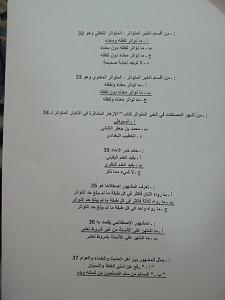 : - من أقسام الخبر المتواتر ، المتواتر اللفظي وهو 32
أ - ما تواتر لفظه ومعناه
ب - ما تواتر لفظه دون معناه
ج - ما تواتر معناه دون لفظه
د - لا توجد اجابة صحيحة
: - من أقسام الخبر المتواتر ، المتواتر المعنوي وهو 33
أ - ما تواتر معناه ولفظه
ب - ما تواتر معناه دون لفظه
ج - ما تواتر لفظه دون معناه
: - من أشهر المصنفات في الخبر المتواتر كتاب " الأزهار المتناثرة في الاخبار المتواترة لـ 34
أ - السيوطي
ب - محمد بن جعفر الكتاني
ج - الخطيب البغدادي
: - حكم خبر الآحاد 35
أ - يفيد العلم اليقيني
ب - يفيد العلم النظري
ج - لا شيء مما ذكر
: - تعرف المشهور إصطلاحا هو 35
أ - ما رواه اثنان فأكثر في كل طبقة ما لم يبلغ حد التواتر
ب - ما رواه ثلاثة فأكثر في كل طبقة ما لم يبلغ حد التواتر
ج - ما رواه واحد في كل طبقة ما لم يبلغ حد التواتر
: - المشهور الإصطلاحي يقصد به 36
أ - ما اشتهر على الألسنة من غير شروط تعتبر
ب - ما اشتهر على الألسنة بشروط تعتبر
: - يمثل للمشهور بين أهل الحديث والعلماء والعوام 37
أ - " رفع عن أمتي الخطأ والنسيان
ب - " المسلم من سلم المسلمون من لسانه ويده